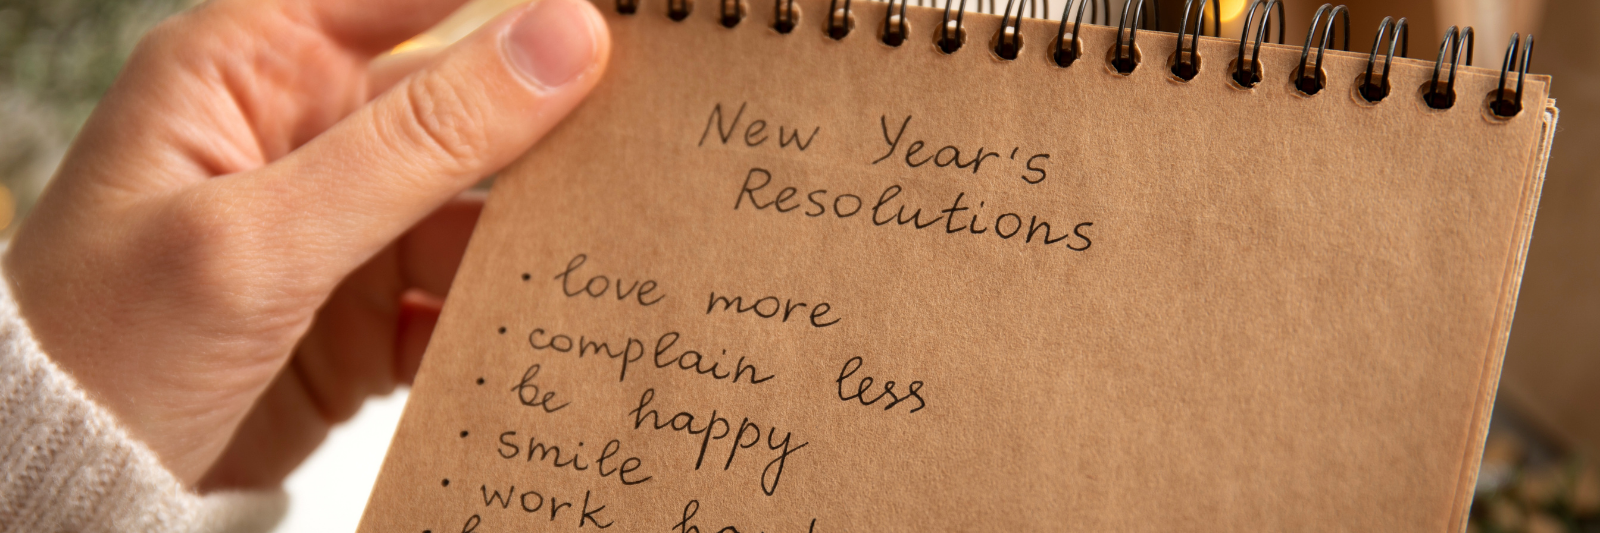 New Year's
Resolutions
• love more
• complain less
• be happy
• smile
• work